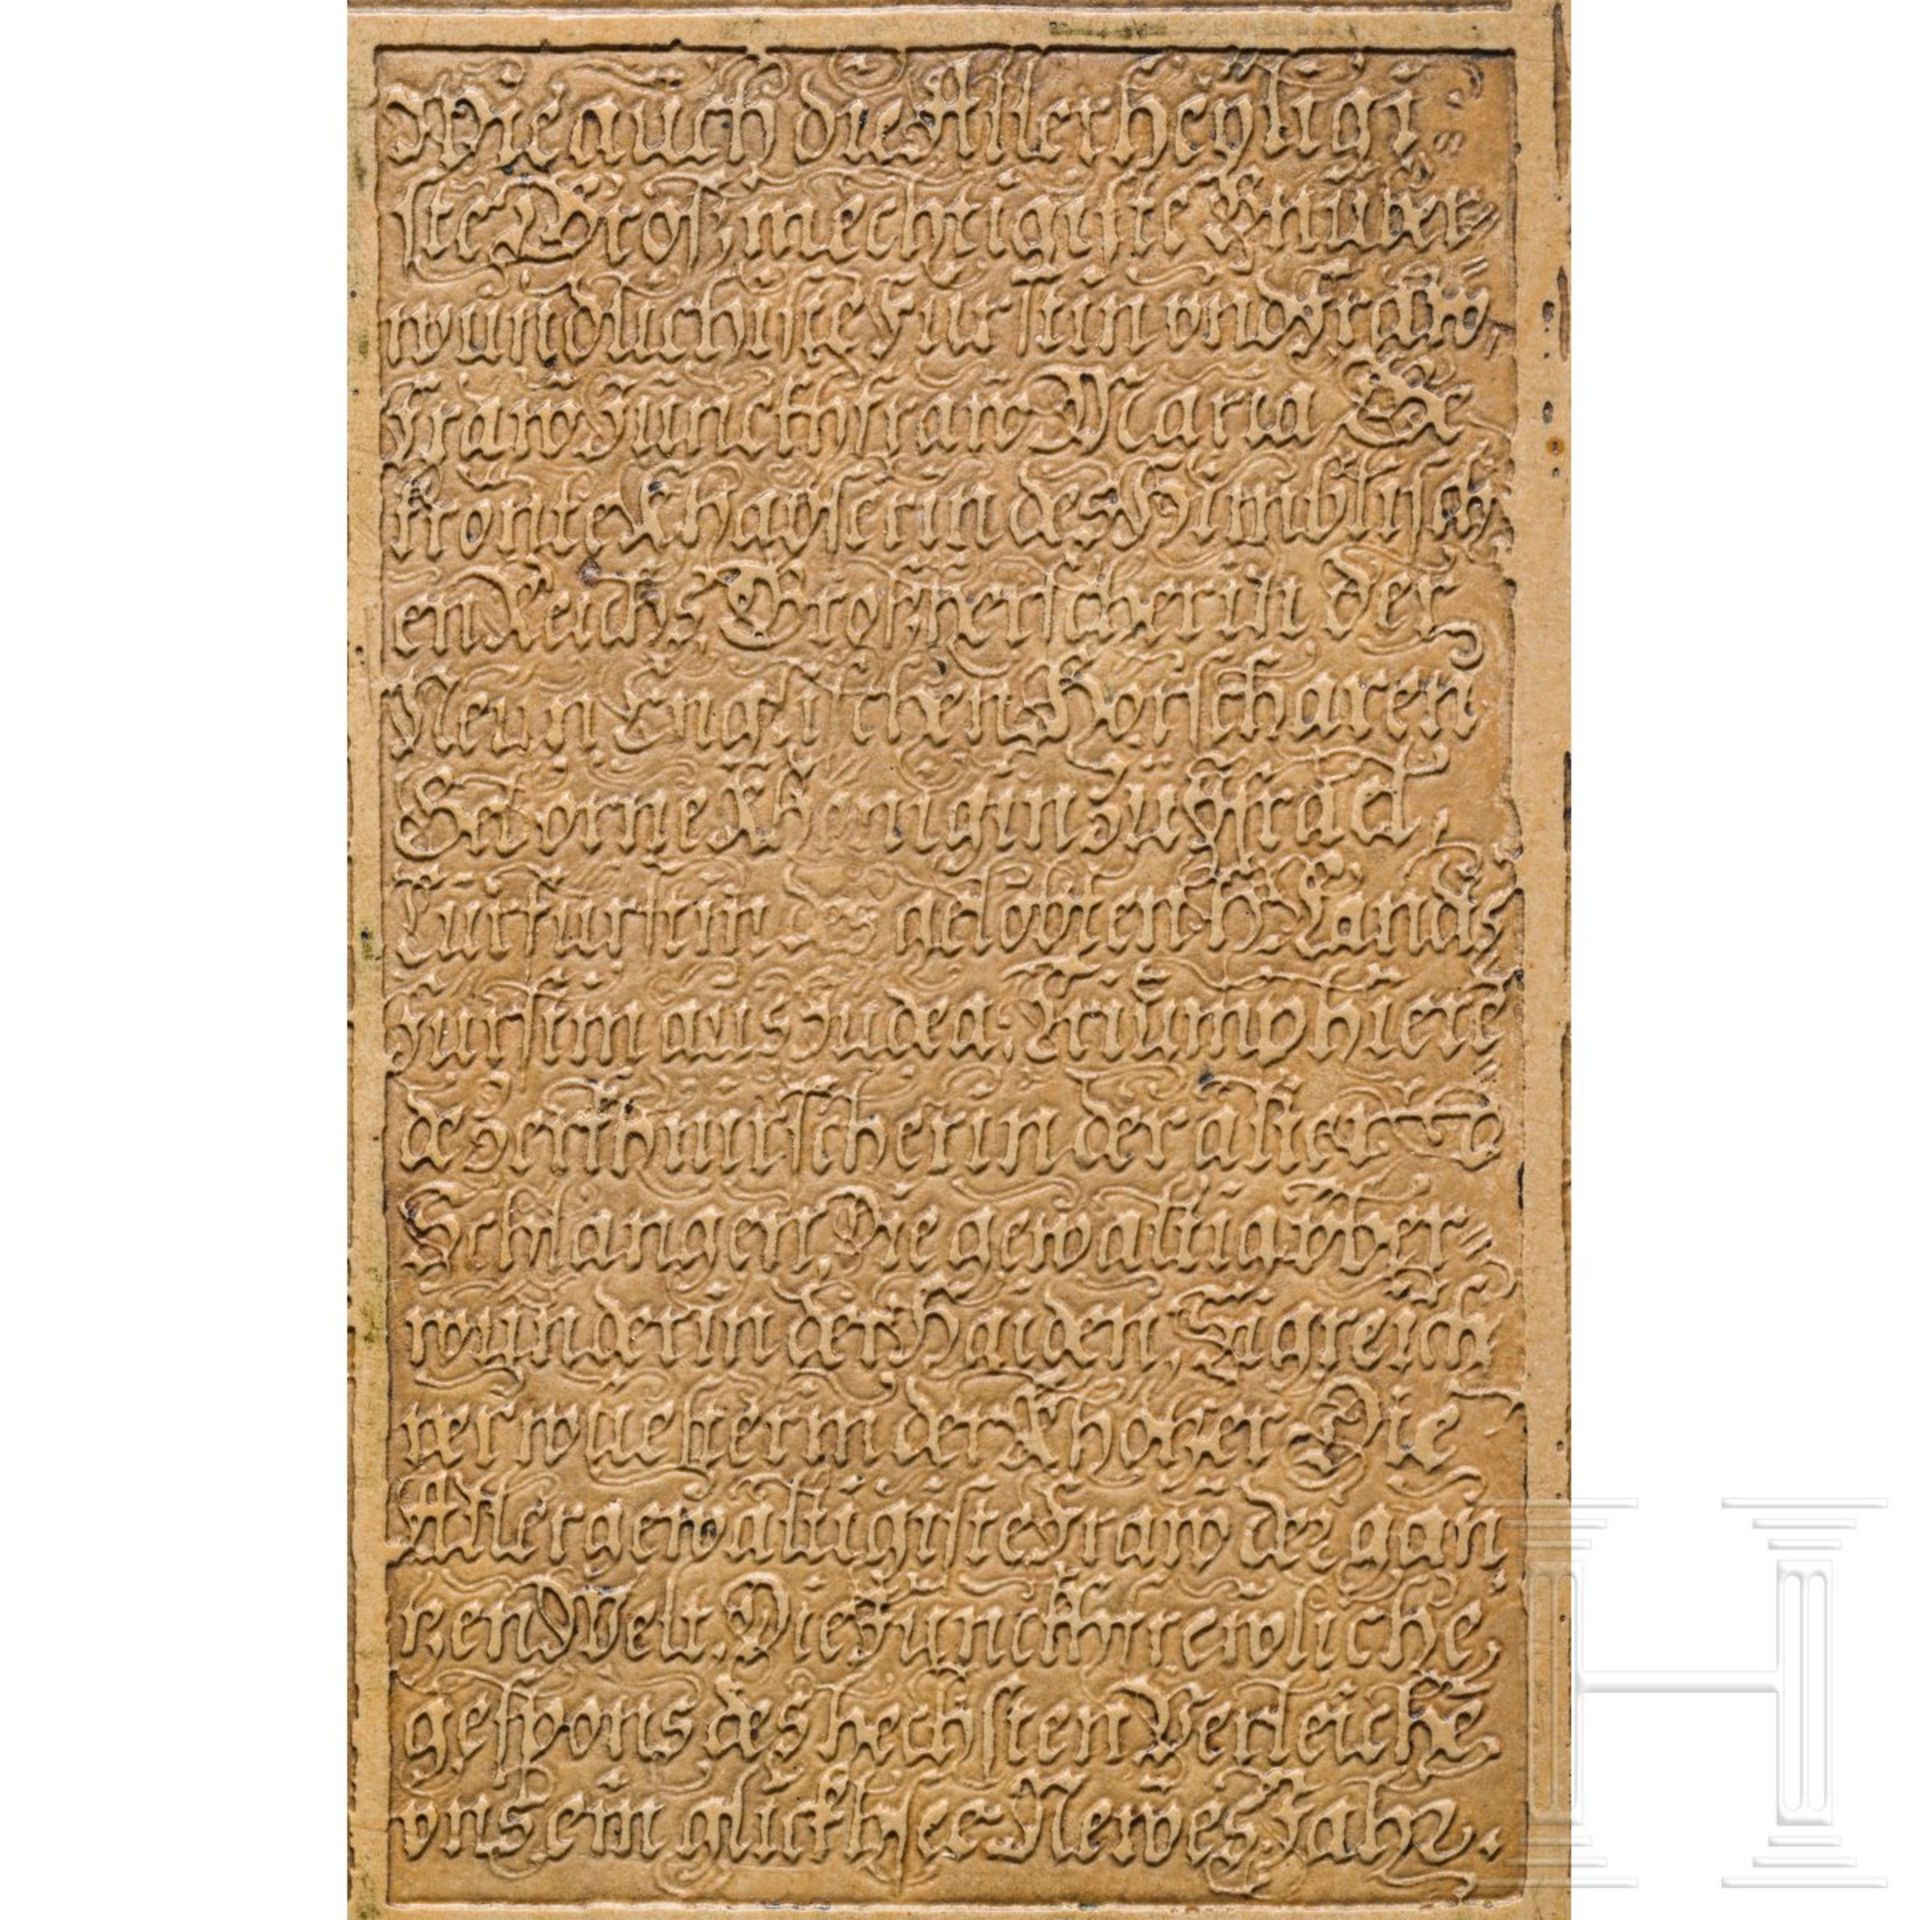 Wie auch die Allerheyligi=
ste Großmechtigiste Vnüber=
wündlichiste Fürstin vnd Fraw,
Fraw Jünckhfraw Maria Ge
krönte Khayserin des Himblisch
en Reichs, Großherscherin der
Neun Englischen Hörscharen
Geborne Khenigin zu Ysrael,
Curfürstin des gelobten H: Landts
Fürstin aus Judea: Triumphiere
de Zerkhnirscherin der alten
Schlangen, Die gewaltig vber=
wünderin der Haiden, Sigreich
verwuesterin der Khözer Die
Allergewaltigiste Fraw der gan
zen Welt. Die Jünckhfrewliche,
gespons des hechsten Verleiche,
vns ein glickhsee: Newes Jahr.